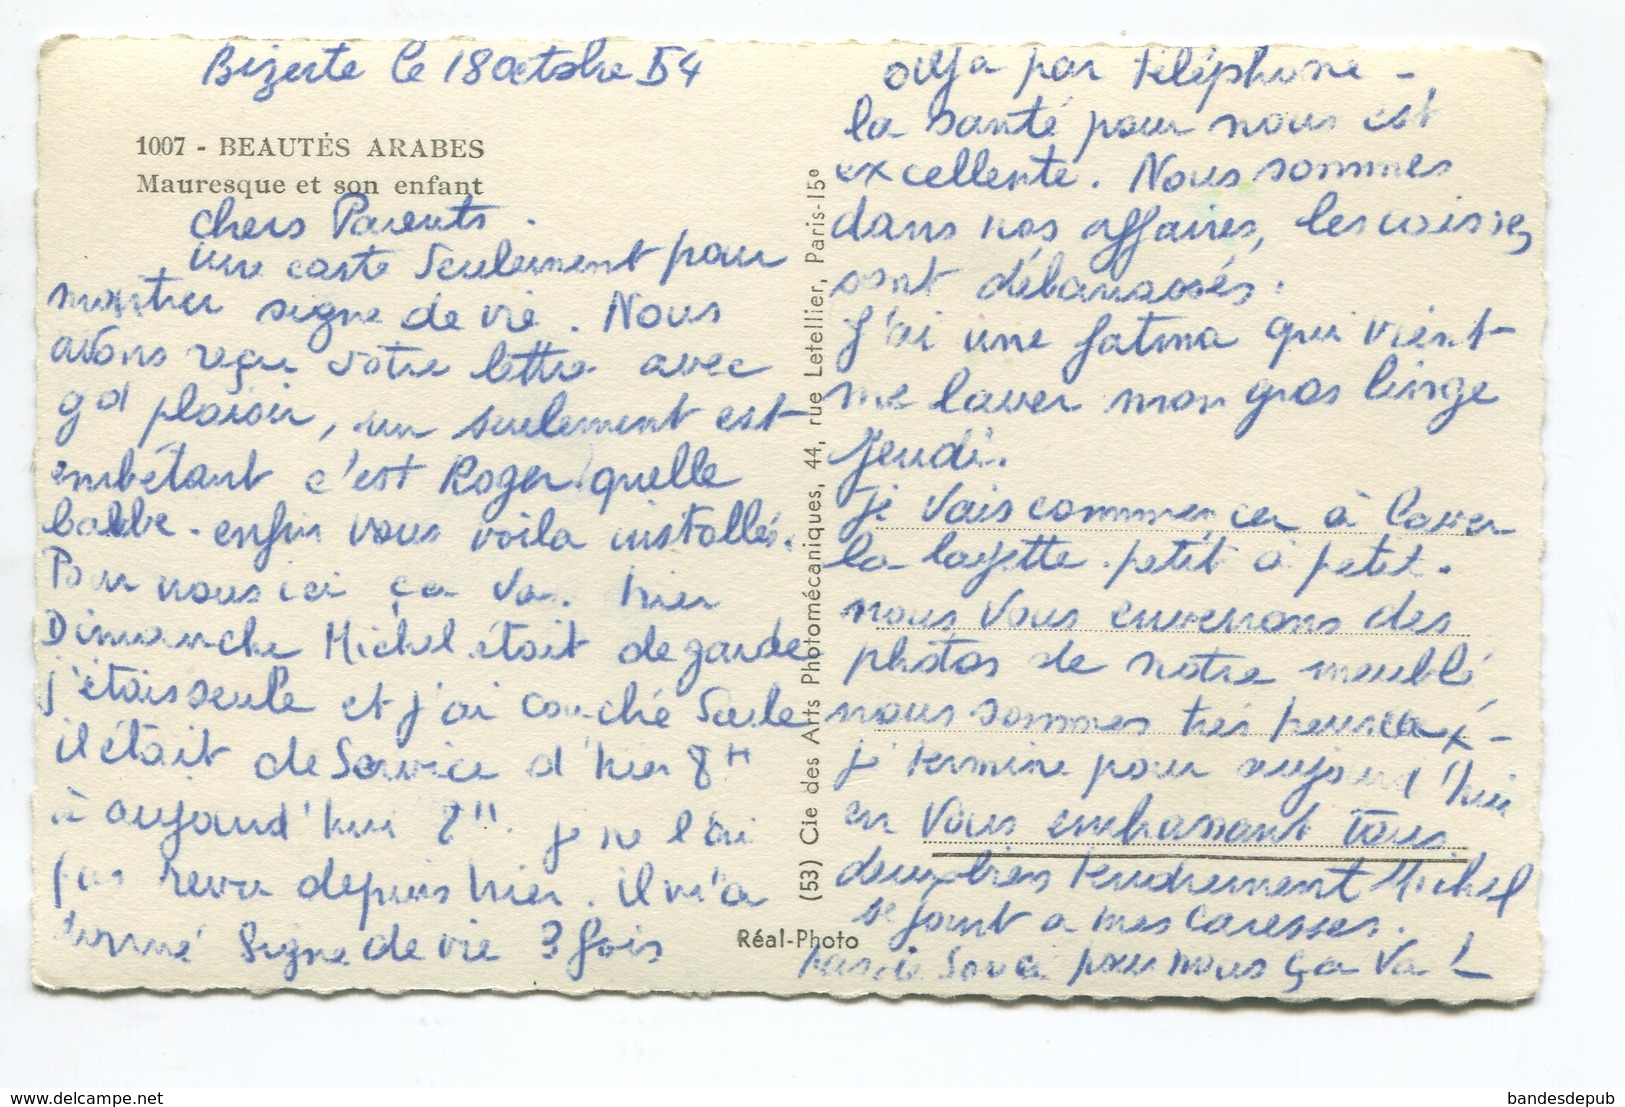 Bizerte le 18 octobre 54
1007 - BEAUTÉS ARABES
Mauresque et son enfant
Chers Parents.
une carte seulement pour
montrer signe de vie. Nous
avons reçu votre lettre avec
gd plaisir, un seulement est
embêtant c'est Roger quelle
barbe. enfin vous voila installés.
Pour nous ici ça va. hier
Dimanche Michel était de garde
j'étais seule et j'ai couché seule
il était de service d'hier 8H
à aujourd'hui 8H. je ne l'ai
pas revu depuis hier. il m'a
donné signe de vie 3 fois
déjà par téléphone -
la santé pour nous est
excellente. Nous sommes
dans nos affaires, les caisses
sont débarassés.
J'ai une fatma qui vient
me laver mon gros linge
jeudi.
je vais commencer à laver
la layette petit à petit.
nous vous enverrons des
photos de notre meublé,
nous sommes très heureux -
je termine pour aujourd'hui
en vous embrassant tous
deux bien tendrement Michel
se joint a mes caresses.
pas de souci pour nous ça va !
(53) Cie des Arts Photomécaniques, 44, rue Letellier, Paris-15e
Réal-Photo
delcampe.net
bandesdepub